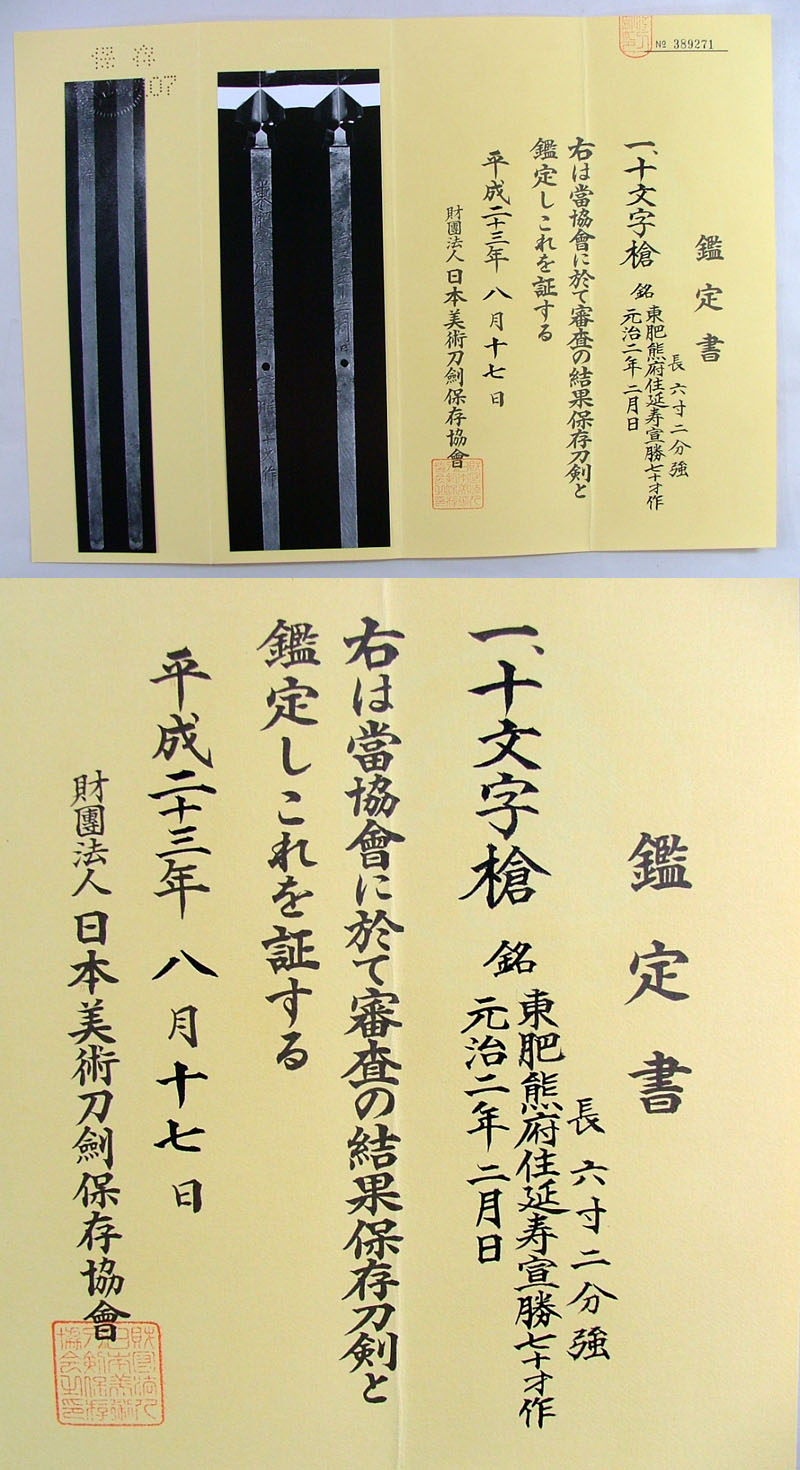 保存
107
№ 389271
鑑定書
一、十文字槍
長 六寸二分強
銘 東肥熊府住延寿宣勝七十才作
元治二年二月日
右は當協會に於て審査の結果保存刀剣と
鑑定しこれを証する
平成二十三年 八月十七日
財團法人 日本美術刀劍保存協會
鑑定書
一、十文字槍
長 六寸二分強
銘 東肥熊府住延寿宣勝七十才作
元治二年二月日
右は當協會に於て審査の結果保存刀剣と
鑑定しこれを証する
平成二十三年 八月十七日
財團法人 日本美術刀劍保存協會